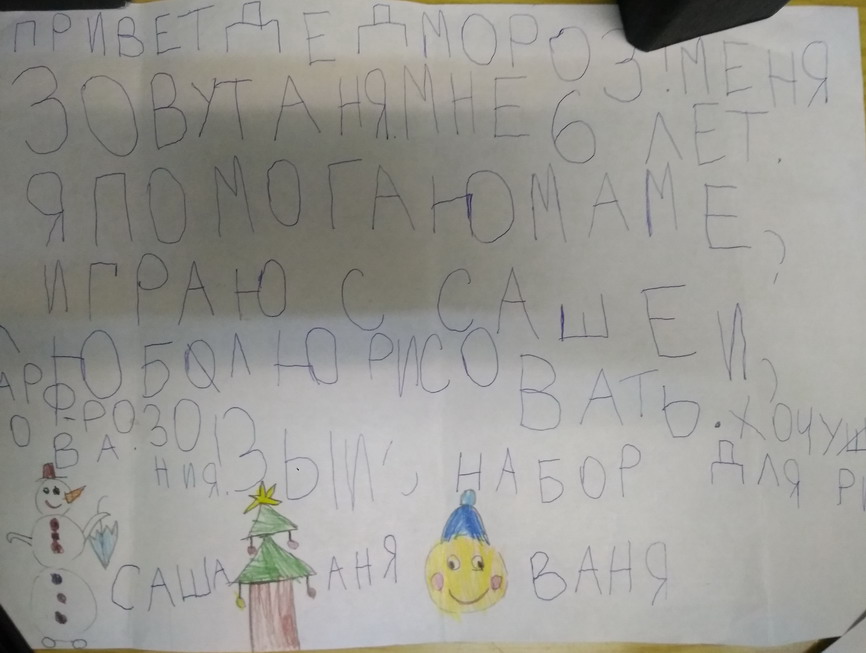 ПРИВЕТ ДЕД МОРОЗ! МЕНЯ
ЗОВУТ АНЯ. МНЕ 6 ЛЕТ.
Я ПОМОГАЮ МАМЕ,
ИГРАЮ С САШЕЙ,
ЛЮБОЛЮ РИСОВАТЬ. ХОЧУ Ш
АР РОЗО
ВЫЙ, НАБОР ДЛЯ РИ
О ВА
НИЯ.
САША АНЯ ВАНЯ